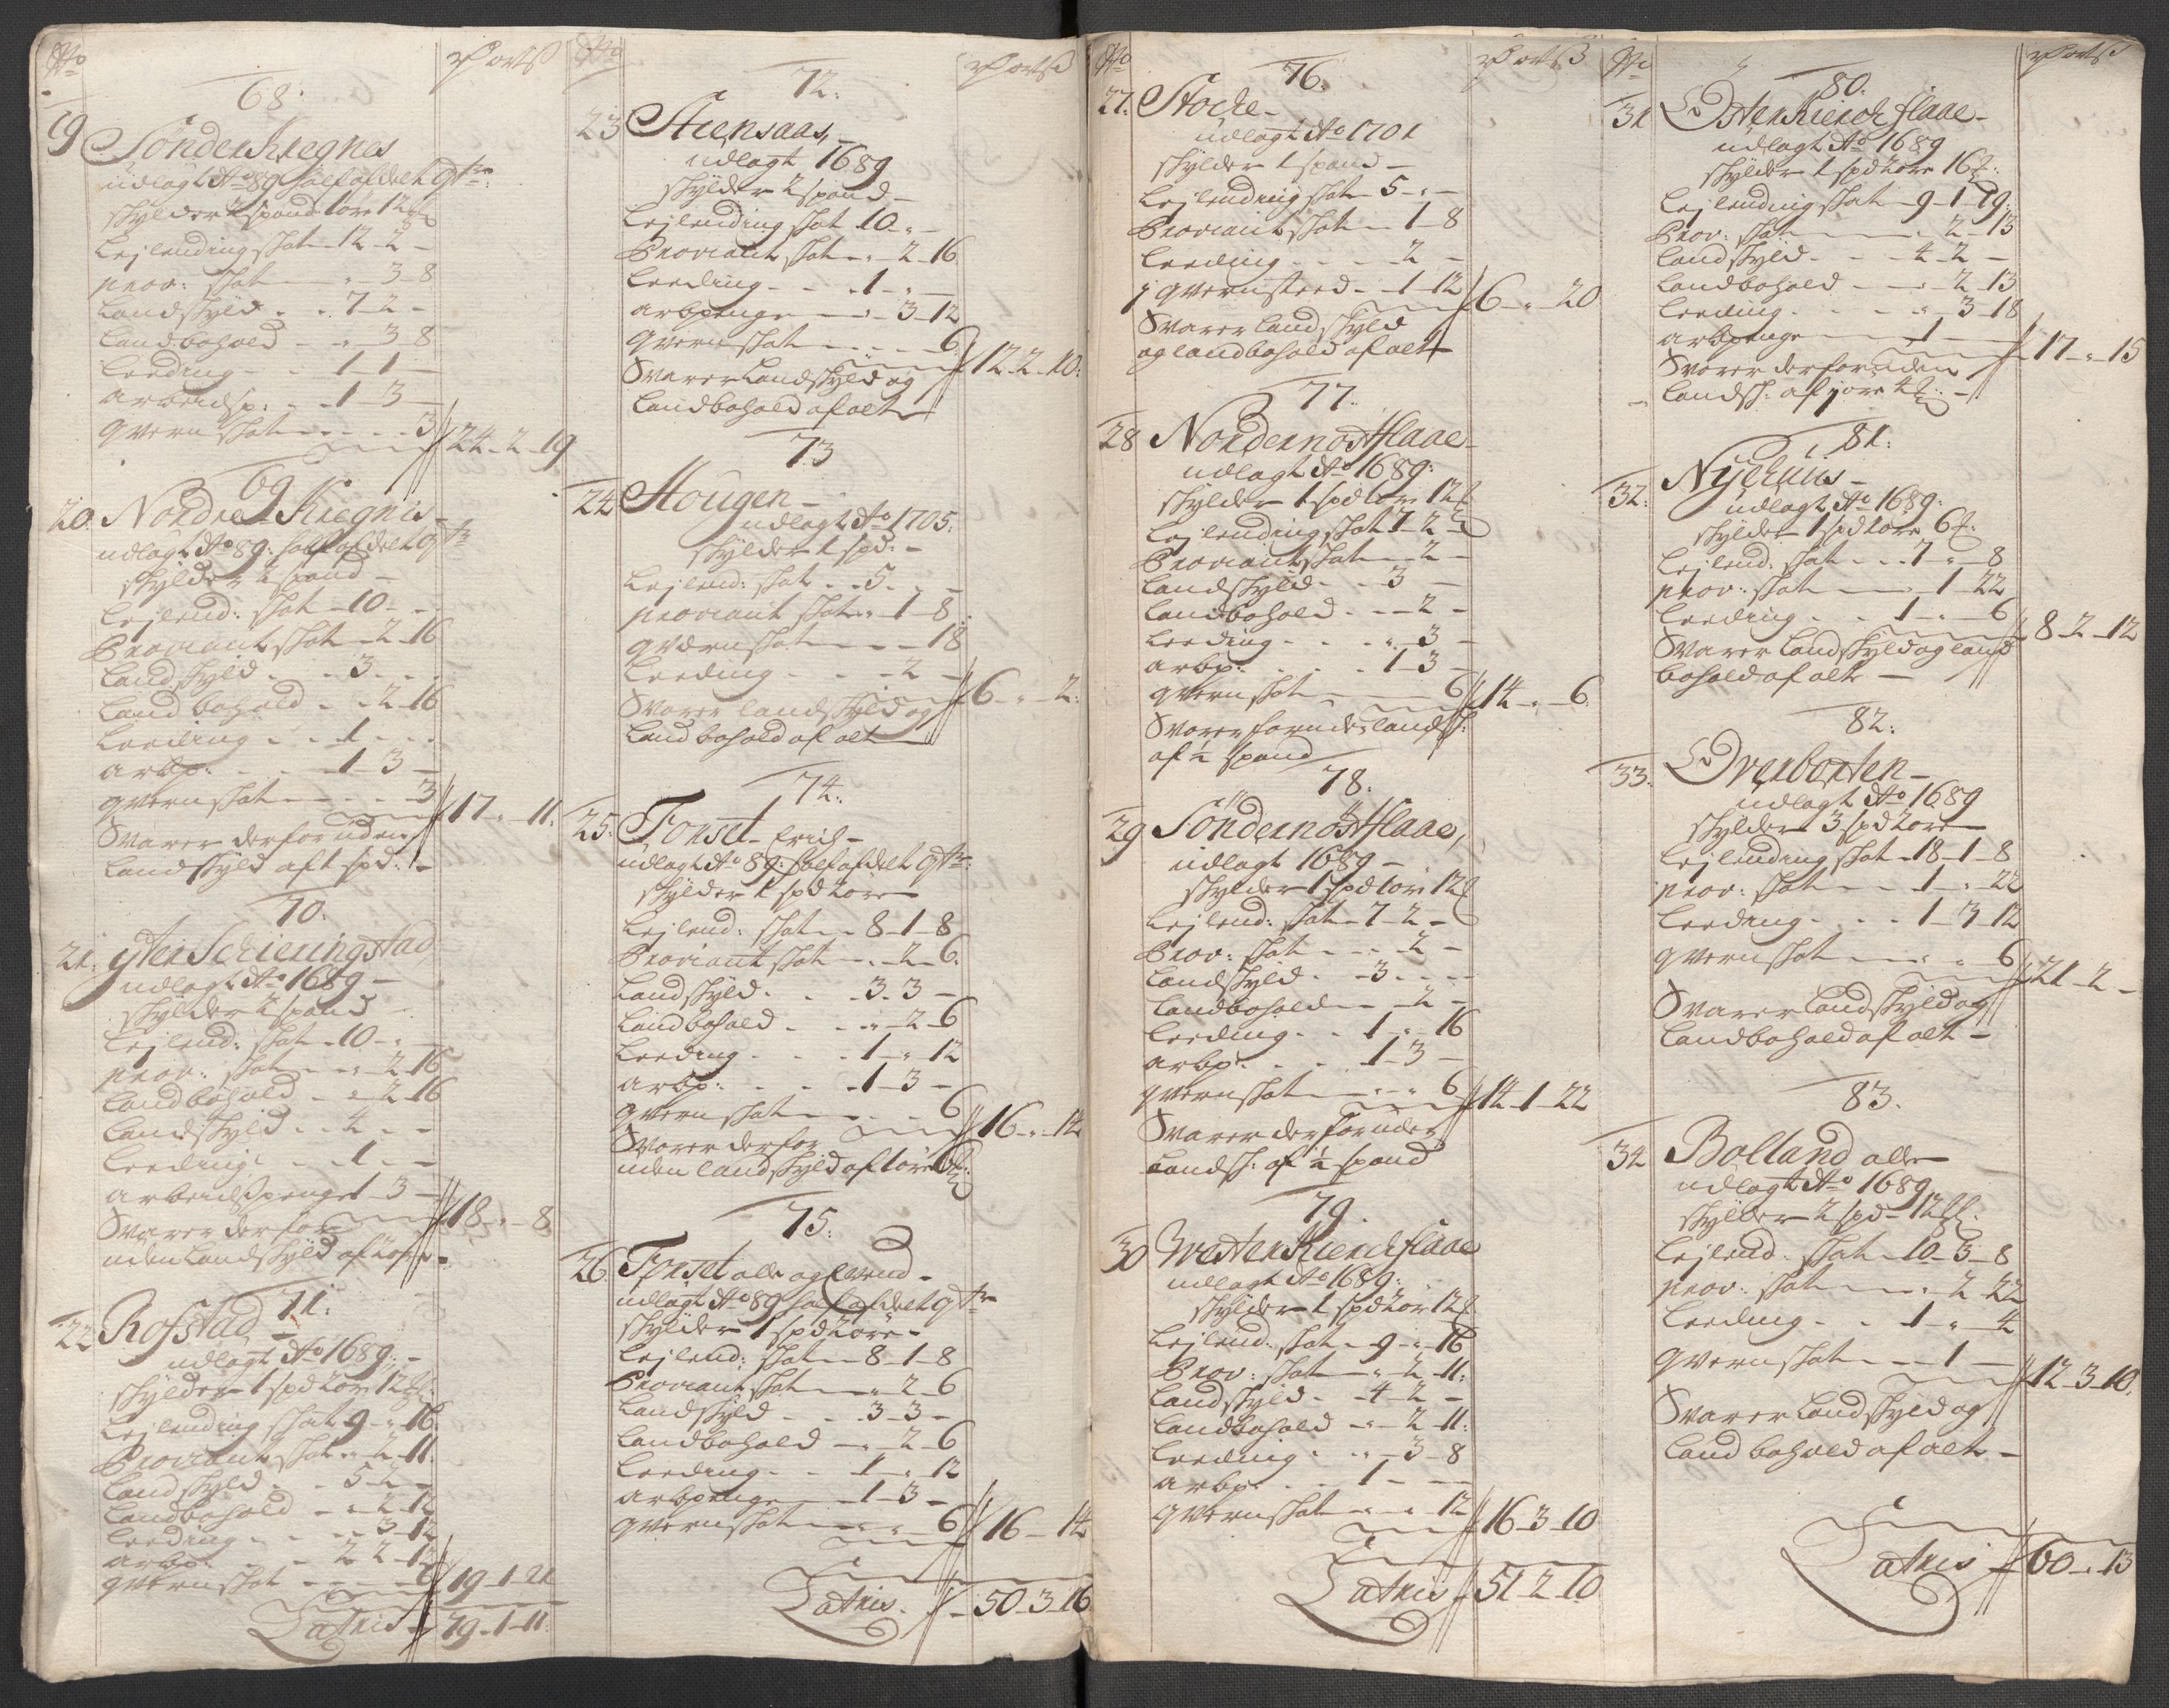 No
Ports
68.
19
Sönder Kregnes
udlagt Ao 89 half afdelt qtr:
skylder 2 spand 1 öre 12 ℔
Lejlending skat 12-2-
prov: skat " 3-8
Landskyld 7-2-
Landbohold - " 3-8
Leeding - 1-1-
Arbeidsp: - 1-3-
qvernskat - 3
24-2-19
69
20. Nordre Kregnis
udlagt Ao 89: half afdelt qtr
skylder 2 spand -
Lejlend: skat - 10 - -
Proviant skat - 2-16
Landskyld - 3 - -
Land bohold - - 2-16
Leeding - - 1 - -
arbp: - - 1-3-
qvern skat - - - 3
17-"-11.
Svarer der foruden
Landskyld af 1 spd: -
70.
21. ytter Schieringstad
udlagt Ao 1689 -
skylder 2 spand -
Lejlend: skat - 10 - "
prov: skat - " 2-16
Landbohold - " 2-16
Landskyld - 4 - -
Leeding - - 1 - -
arbeidspenge 1-3-
18-"-8
Svarer der for
uden Landskyld af 2 öre -
71.
22 Rofstad -
udlagt Ao 1689: -
skylder 1 spd 2 ör 12 ℔:
Lejlending skat 9-"-16.
Proviant skat " 2-11.
Land skyld - 5-2-
Landbohold - " 2-12
Leeding - - " 3-12
arbp: - 2 2-12
qvernskat - - - 6
19-1-21
Latris - 79-1-11:
No
Ports
72.
23 Steensaas, -
udlagt 1689
skylder 2 spand -
Lejlending skat 10 - " -
Proviant skat - " 2-16
Leeding - - 1 - " -
arbpenge - - 3-12
qvern skat - - - 6
12-2-10:
Svarer Landskyld og
Landbohold af alt -
73
24 Hougen -
udlagt Ao 1705:
skylder 1 spd: -
Lejlend: skat - - 5 - -
proviant skat " 1-8
qvernskat - - - 18
Leeding - - - 2 -
6-"-2:
Svarer landskyld og
Land bohold af alt -
74:
25. Forset - Erich -
udlagt Ao 89: half afdelt qtr:
skylder 1 spd 2 öre -
Lejlend: skat - 8-1-8
Proviant skat - - 2-6.
Landskyld - - 3-3-
Landbohold - - " 2-6
Leeding - - 1-"-12
arbp: - - 1-3-
qvern skat - - - 6
16-"-14
Svarer der for
uden landskyld af 1 öre
75:
26. Forset alle og Evend -
udlagt Ao 89 half afdelt qtr
skylder 1 spd 2 öre -
Lejlend: skat - 8-1-8
Proviant skat - " 2-6
Landskyld - - 3-3-
Landbohold - " 2-6
Leeding - - 1-"-12
arbpenge - 1-3-
qvernskat - " " 6
16-14
Latris. 50-3-16
No
Ports
76.
27. Stocke -
udlagt Ao 1701
skylder 1 spand -
Lejlending skat - 5-"-
Proviant skat - 1-8
Leeding - - - 2 -
1 qvernsteed - 1-12
6-"-20
Svarer Landskyld
og landbohold af alt -
77.
28 Nordernöstflaae -
udlagt Ao 1689:
skylder 1 spd 1 ör 12 ℔
Lejlending skat 7-2-
Proviant skat - 2 -
Landskyld - - 3 -
Landbohold - - 2 -
Leeding - - " 3 -
arbp: - - 1-3-
qvern skat - - 6
14-"-6.
Svarer foruden landsk:
af ½ spand
78.
29 Söndernöstflaae,
udlagt 1689 -
skylder 1 spd 1 ör 12 ℔
Lejlend: skat - 7-2-
Prov: skat - - 2 -
Landskyld - - 3 - - -
Landbohold - - 2 -
Leeding - - 1-"-16
arbp: - - 1-3-
qvernskat - - " 6
14-1-22
Svarer der foruden
Landsk: af ½ spand
79.
30 Westerkierchflaae
udlagt Ao 1689:
skylder 1 spd 2 ör 12 ℔
Lejlend: skat - 9-"-16
Prov: skat - " 2-11:
Landskyld - 4-2-
Landbohold - " 2-11:
Leeding - " 3-8
arbp: - - 1 - - -
qvernskat - " " 12
16-3-10
Latris 51-2-10
No
Ports
80.
31 Österkierchflaae -
udlagt Ao 1689
skylder 1 spd 2 öre 16 ℔:
Lejlending skat - 9-1-19:
Prov: skat - - " 2-13
Landskyld - - 4-2-
Landbohold - - 2-13
Leeding - - - " 3-18
arbpenge - - 1 -
17-"-15
Svarer der foruden
Landsk: af 1 öre 4 ℔: -
81:
32. Nyehuus -
udlagt Ao 1689:
skylder 1 spd 1 öre 6 ℔:
Lejlend: skat - - 7-"-8
prov: skat - - 1-22
Leeding - - 1-"-6
8-2-12
Svarer Landskyld og land
bohold af alt -
82:
33. Overborten -
udlagt Ao 1689
skylder 3 spd 2 öre -
Lejlending skat - 18-1-8
prov: skat - - 1-"-22
Leeding - - - 1-3-12
qvern skat - - " - 6
21-2-
Svarer Landskyld og
Landbohold af alt -
83.
34 Bolland alle
udlagt Ao 1689
skylder 2 spd - 12 ℔:
Lejlend: skat - 10-3-8
prov: skat - - " 2-22
Leeding - - 1-"-4
qvern skat - - 1 -
12-3-10.
Svarer Landskyld og
Land bohold af alt -
Latris 60-"-13